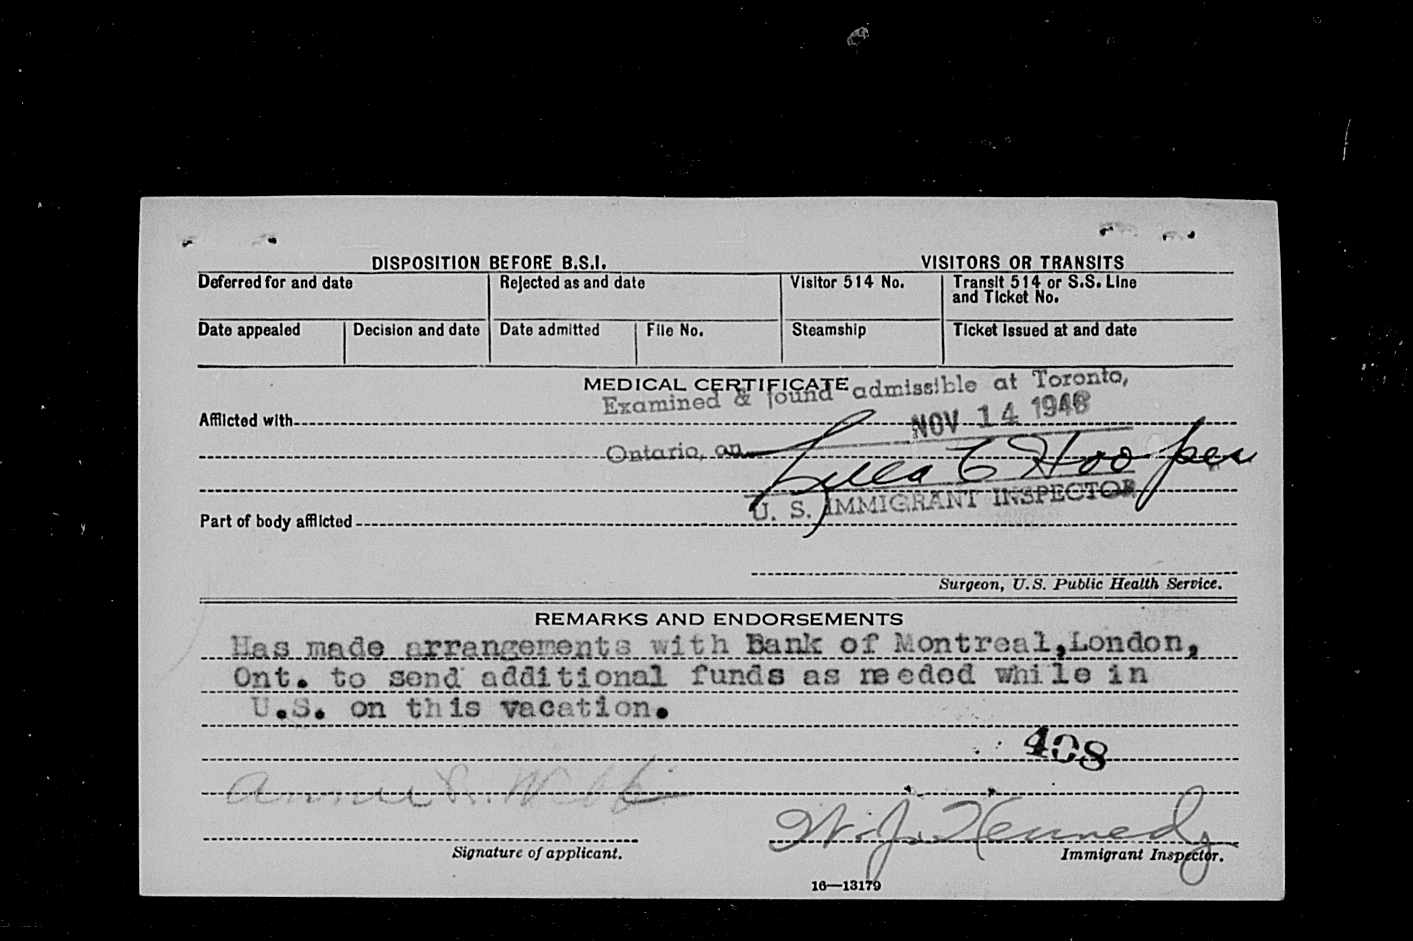 DISPOSITION BEFORE B.S.I. VISITORS OR TRANSITS
Deferred for and date Rejected as and date Visitor 514 No. Transit 514 or S.S. Line and Ticket No.
Date appealed Decision and date Date admitted File No. Steamship Ticket issued at and date
MEDICAL CERTIFICATE
Examined & found admissible at Toronto,
Afflicted with
NOV 14 1946
Ontario, on
Hooper
U. S. IMMIGRANT INSPECTOR
Part of body afflicted
Surgeon, U.S. Public Health Service.
REMARKS AND ENDORSEMENTS
Has made arrangements with Bank of Montreal, London,
Ont. to send additional funds as needed while in
U.S. on this vacation.
408
Annie R. Webb
W. J. Kennedy
Signature of applicant. Immigrant Inspector.
16—13179